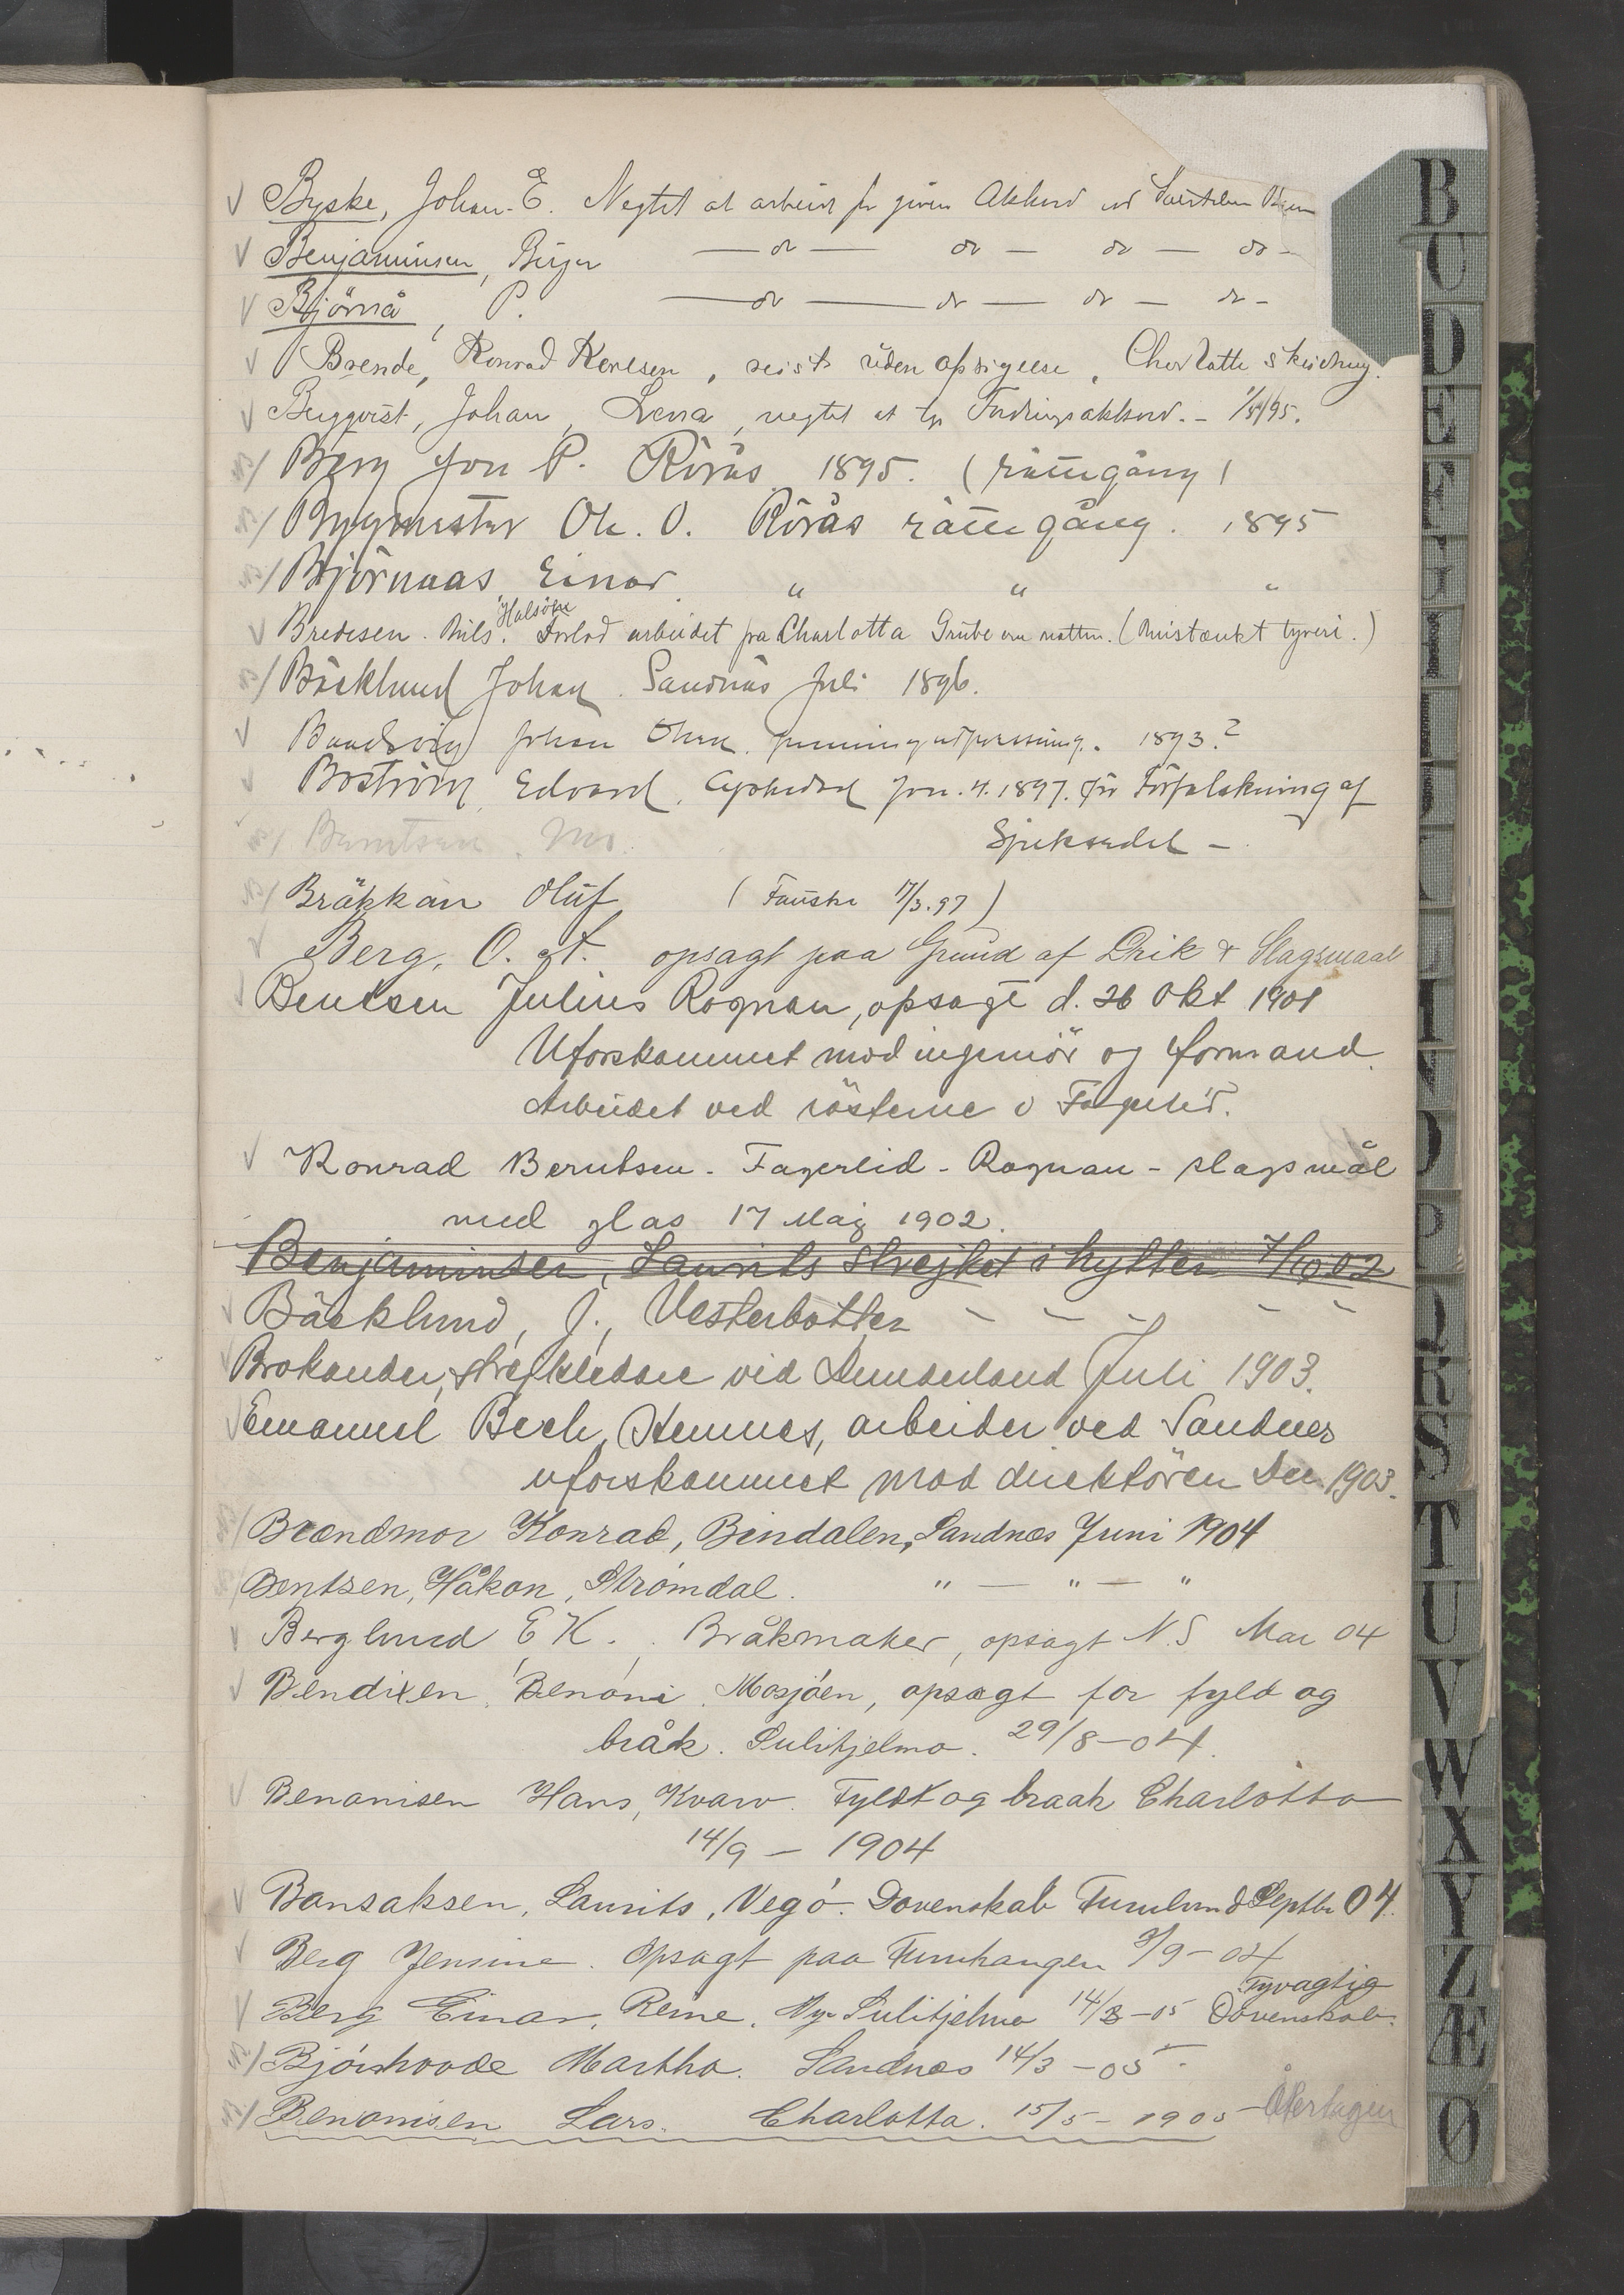 Byske, Johan E. Negtet at arbeide for given Akkord ved
Benjaminsen, Birger — do — do — do — do -
Björnå, P. — do — do — do — do -
Brende, Konrad Karlsen, reist uden opsigelse, Charlotta skeidning.
Bergqvist, Johan, negtet at Fordringsakkord. -
Berg Jon P. Rörås 1895. (rättegång)
Bygmester Ole. O. Rörås rättegång. 1895
Björnaas Einar " " "
Halsöen
Bredesen. Nils. Forlod arbeidet fra Charlotta Grube om natten. (Mistænkt tyveri.)
Bäcklund Johan. Sandnäs Juli 1896.
Johan 1893?
Boström, Edvard, Afskedad Jan. 4. 1897. för Förfalskning af
Sjuksedel -
Berntsen. Mo.
Bräkkan Oluf (Fauske 17/3.97)
Berg, O. A. opsagt paa Grund af Drik & Slagsmaal
Bentsen Julius Rognan, opsagt d. 26 Okt 1901
Uforskammet mod ingeniör og formand.
Arbeidet ved rösterne v Fagerlid.
Konrad Berntsen - Fagerlid - Rognan - slagsmål
med glas 17 Maj 1902.
Benjaminsen, Laurits strejket i hytten 7/10 02
Bäcklund, J., Vesterbotten - - - - -
Brokander, strejkledare vid Dunderland Juli 1903.
Emanuel Bech, Hemnes, arbeider ved Sandnes
uforskammet mod direktören Dec. 1903.
Brændmor Konrad, Bindalen, Sandnæs Juni 1904
Bentzen, Håkon, Strømdal. " — " — "
Berglund, E K., Bråkmaker, opsagt N.S Mar 04
Bendixen, Benoni, Mosjøen, opsagt for fyld og
bråk. Sulitjelma. 29/8-04.
Benonisen Hans, Kvarv. Fyldt og braak Charlotta
14/9 - 1904
Bansaksen, Laurits, Vegø. Dovenskab Furulund Septbr 04.
Berg Jensine. Opsagt paa Furuhaugen 3/9-04
Tyvagtig
Berg Einar, Reine, Ny-Sulitjelma 14/3-05 Dovenskab.
Martha. Sandnæs 14/3-05.
Benonisen Lars. Charlotta. 15/5-1905 Återtagen
B
U
D
E
F
P
R
S
T
U
V
W
X
Y
Z
Æ
Ø